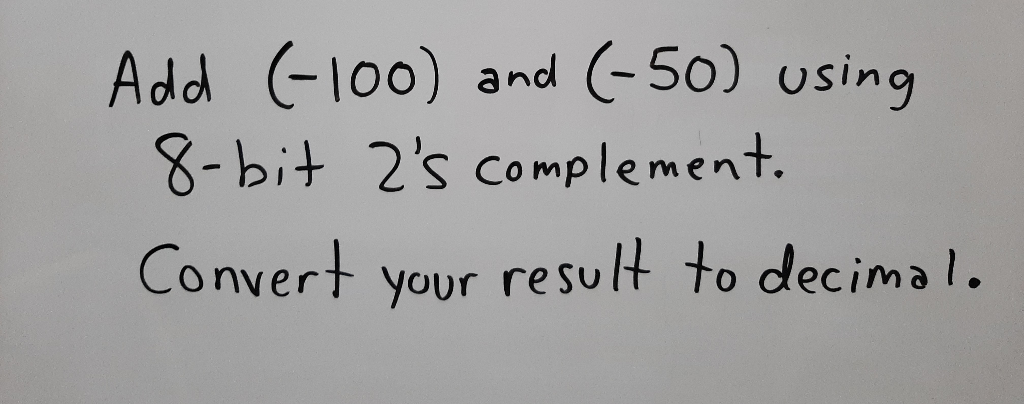 Add (-100) and (-50) using
8-bit 2's complement.
Convert your result to decimal.